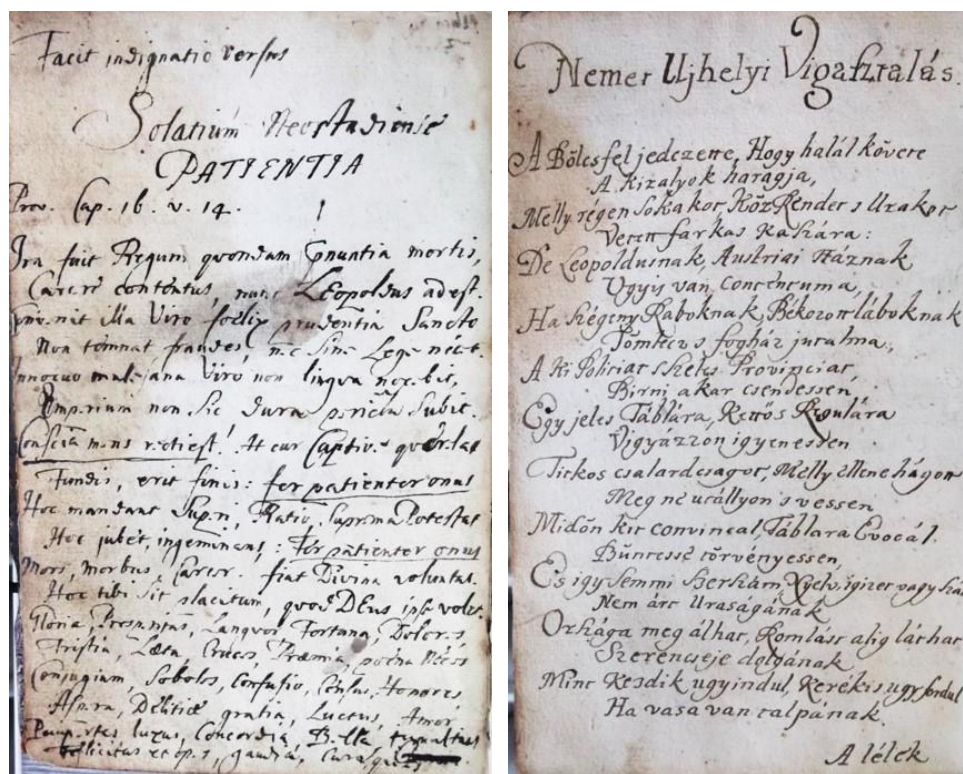 Facit indignatio versus
Solatium Neostadiense
PATIENTIA
Prov. Cap. 16. v. 14.
Ira fuit Regum quondam mortis,
Carcere contentus, nunc Leopoldus adest.
illa Viro foelix prudentia Sancto
Non temnat fraudes, nec sine Lege necet.
Innocuo Viro non lingva nocebit,
Imperium non sic dura subit.
Conscia mens recti est! At cur Captive querelas
Fundis, erit finis: fer patienter onus
Hoc mandant Superi, Ratio, Suprema Potestas
Hoc jubet, ingeminans: Fer patienter onus
Mors, morbus, Carcer. fiat Divina voluntas.
Hoc tibi sit placitum, quod DEus ipse volet.
Gloria Langvor, Fortuna, Dolores
Tristia, Laeta Cruces, Praemia, poena
Conjugium, Soboles, Confusio, Census, Honores
Aspera, Delitiae gratia, Luctus, Amor,
luxus, Concordia, Bella, tumultus
gaudia, Cura,
Nemet Ujhelyi Vigasztalás.
A Bölcs feljedezette, Hogy halál követe
A Kiralyok haragja,
Melly régen sokakot Köz Rendet s Urakot
Vetett farkas kaszára:
De Leopoldusnak, Austriai Háznak
Ugyis van
Ha szégeny Raboknak, Békozott láboknak
Tömletz s fogház jutalma,
A ki Politiat s Provinciat
Birni akar csendessen
Egy jeles Táblára, Kettős Regulára
Vigyazzon igyenessen
Titkos csalardsagot, Melly ellene hágott
Meg ne utállyon s vessen
Midőn kit convincal, Táblara Evocál.
Büntesse törvényessen,
Es igy semmi Nyelv, igizet vagy
Nem árt Uraságának
Országa meg álhat, Romlást alig láthat
Szerencseje dolgának
Mint kezdik ugy indul, Kerékis ugy fordul
Ha vasa van talpának.
A lélek